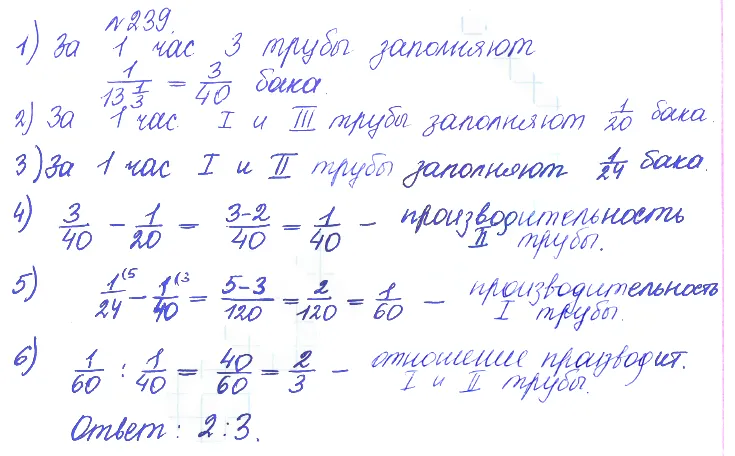 №239.
1) За 1 час 3 трубы заполняют
1/(13 1/3) = 3/40 бака.
2) За 1 час I и III трубы заполняют 1/20 бака.
3) За 1 час I и II трубы заполняют 1/24 бака.
4) 3/40 - 1/20 = (3-2)/40 = 1/40 - производительность
II трубы.
5) 1/24 (5 - 1/40 (3 = (5-3)/120 = 2/120 = 1/60 - производительность
I трубы.
6) 1/60 : 1/40 = 40/60 = 2/3 - отношение празводит.
I и II трубы.
Ответ: 2:3.